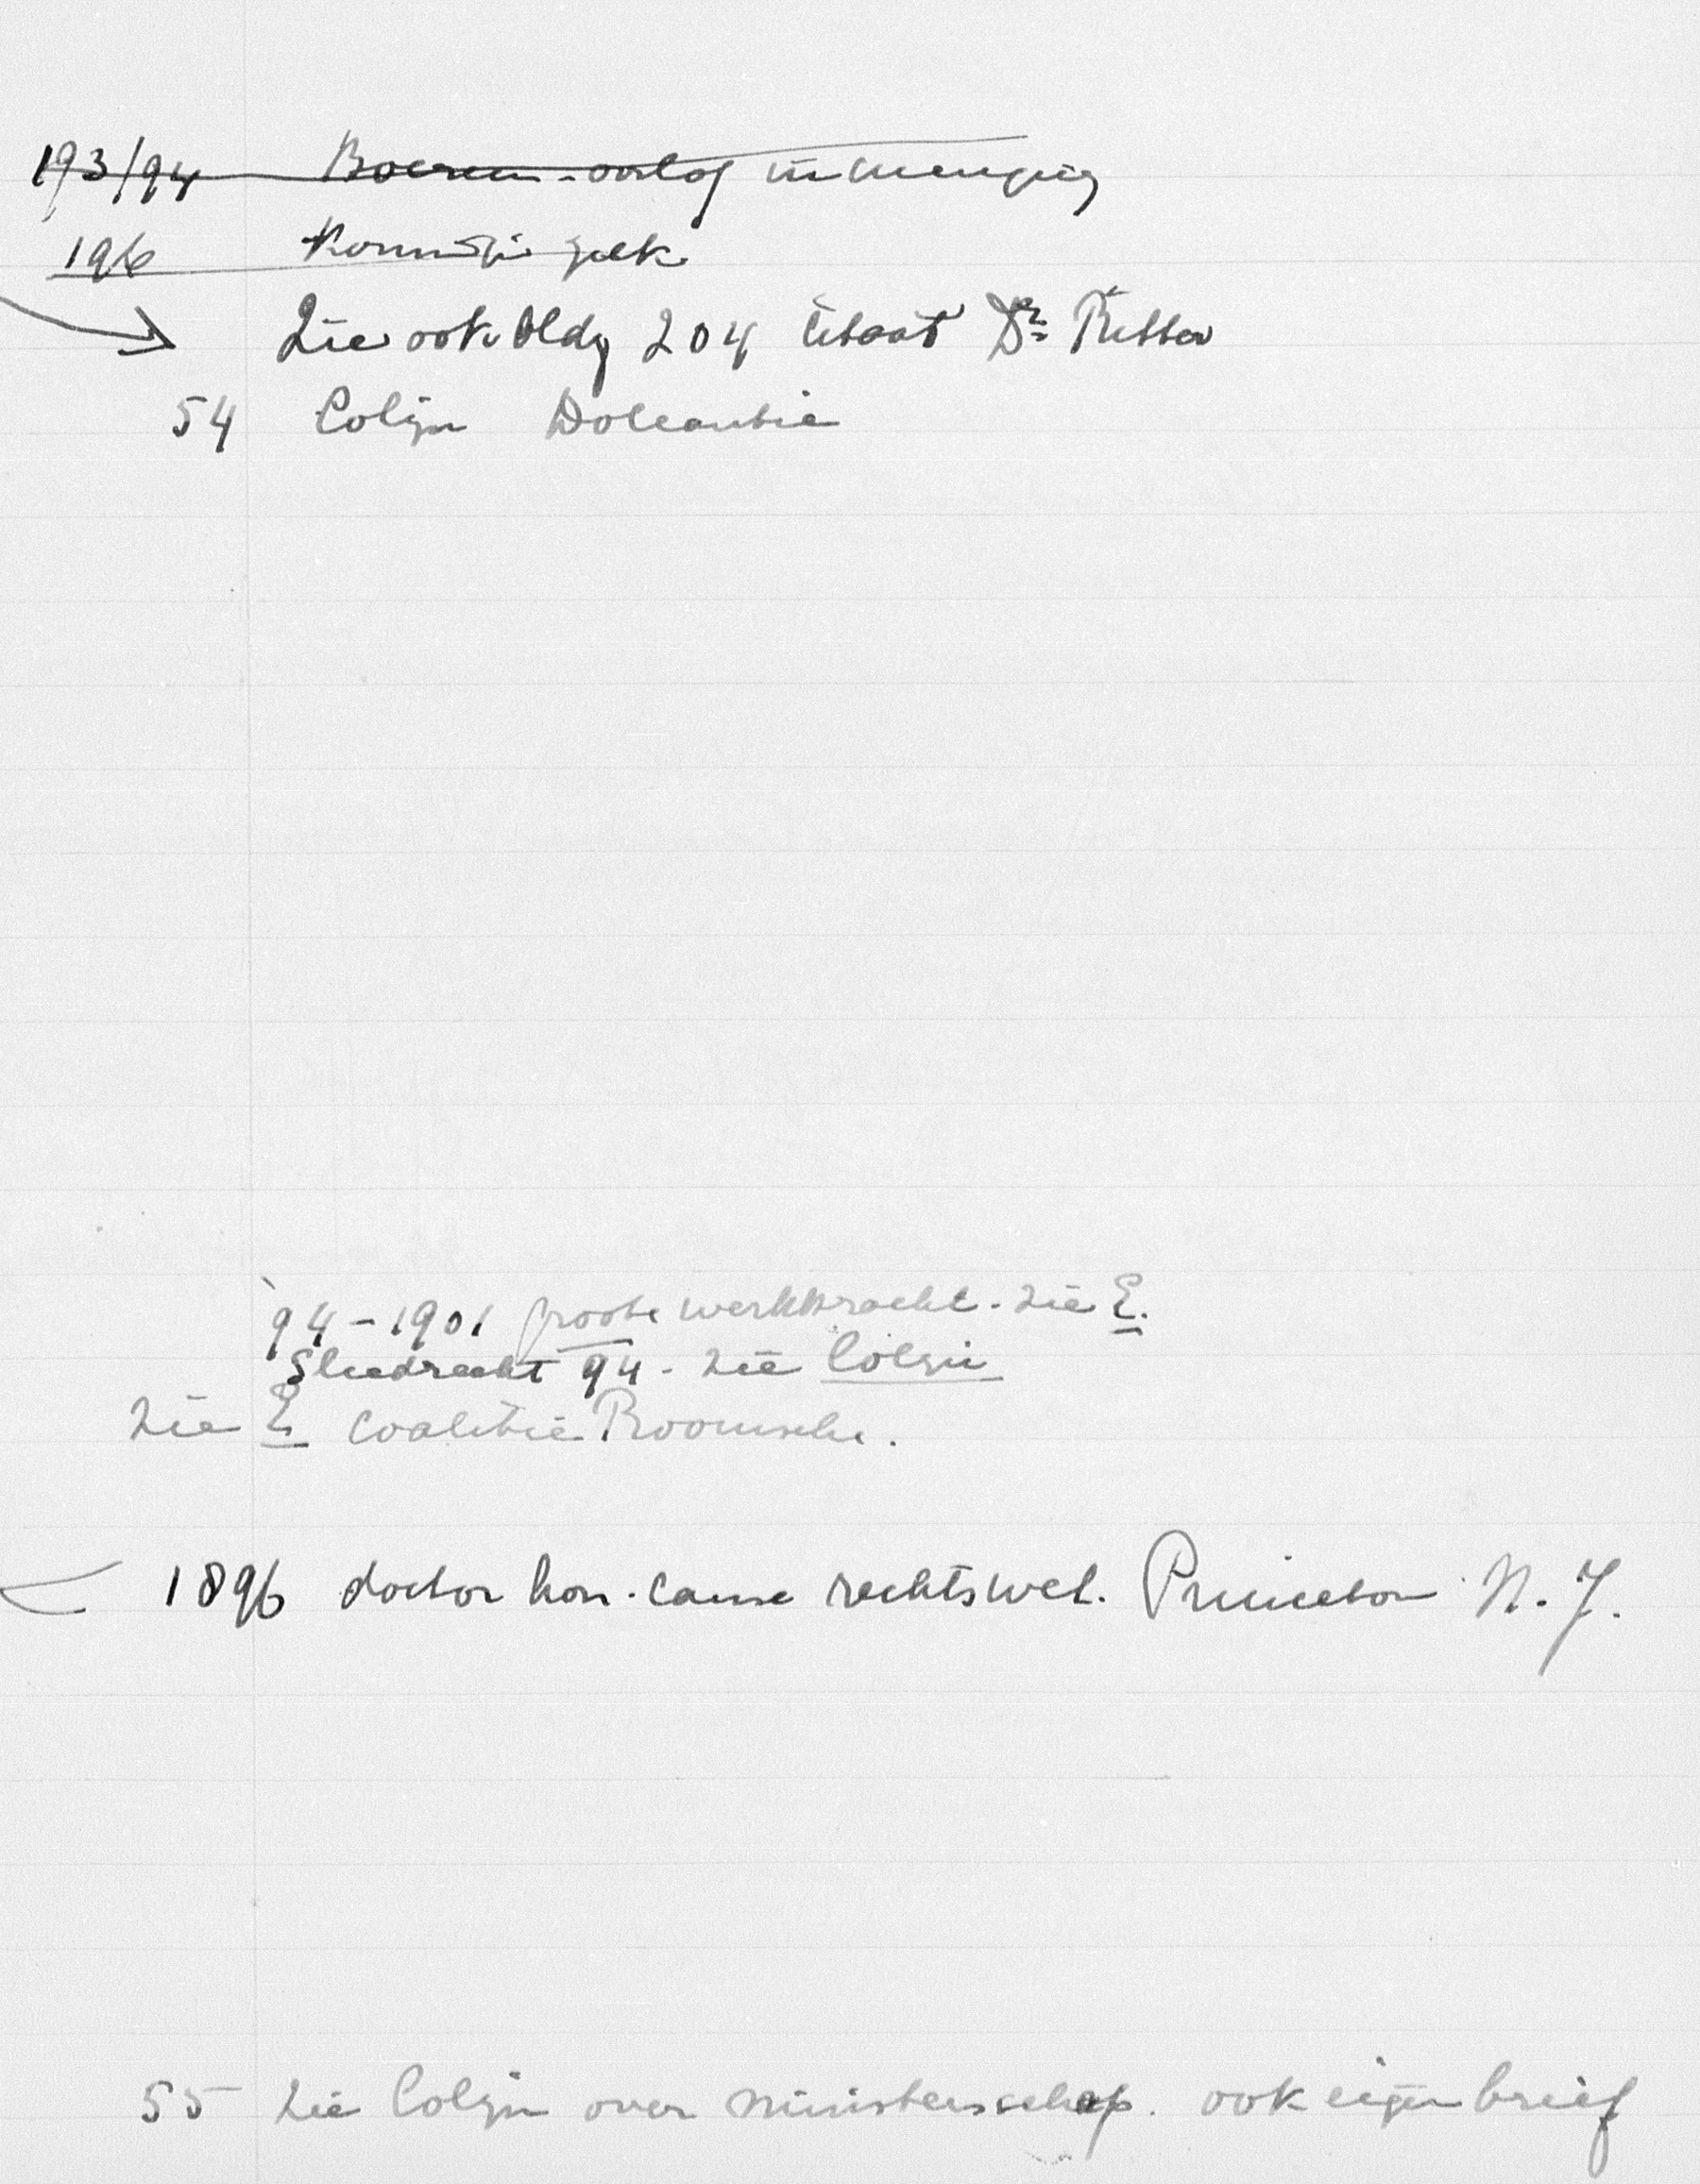 193/94 Boeren-oorlog inmenging
196
Zie ook bldz 204 citaat Dr Ritter
54 Colijn Doleantie
'94-1901 groote werkkracht. Zie E.
Sliedrecht 94 - zie Colijn
Zie E coalitie Roomsche.
1896 doctor hon. causa rechtswet. Princeton N. J.
55 Zie Colijn over ministerschap. ook eigen brief